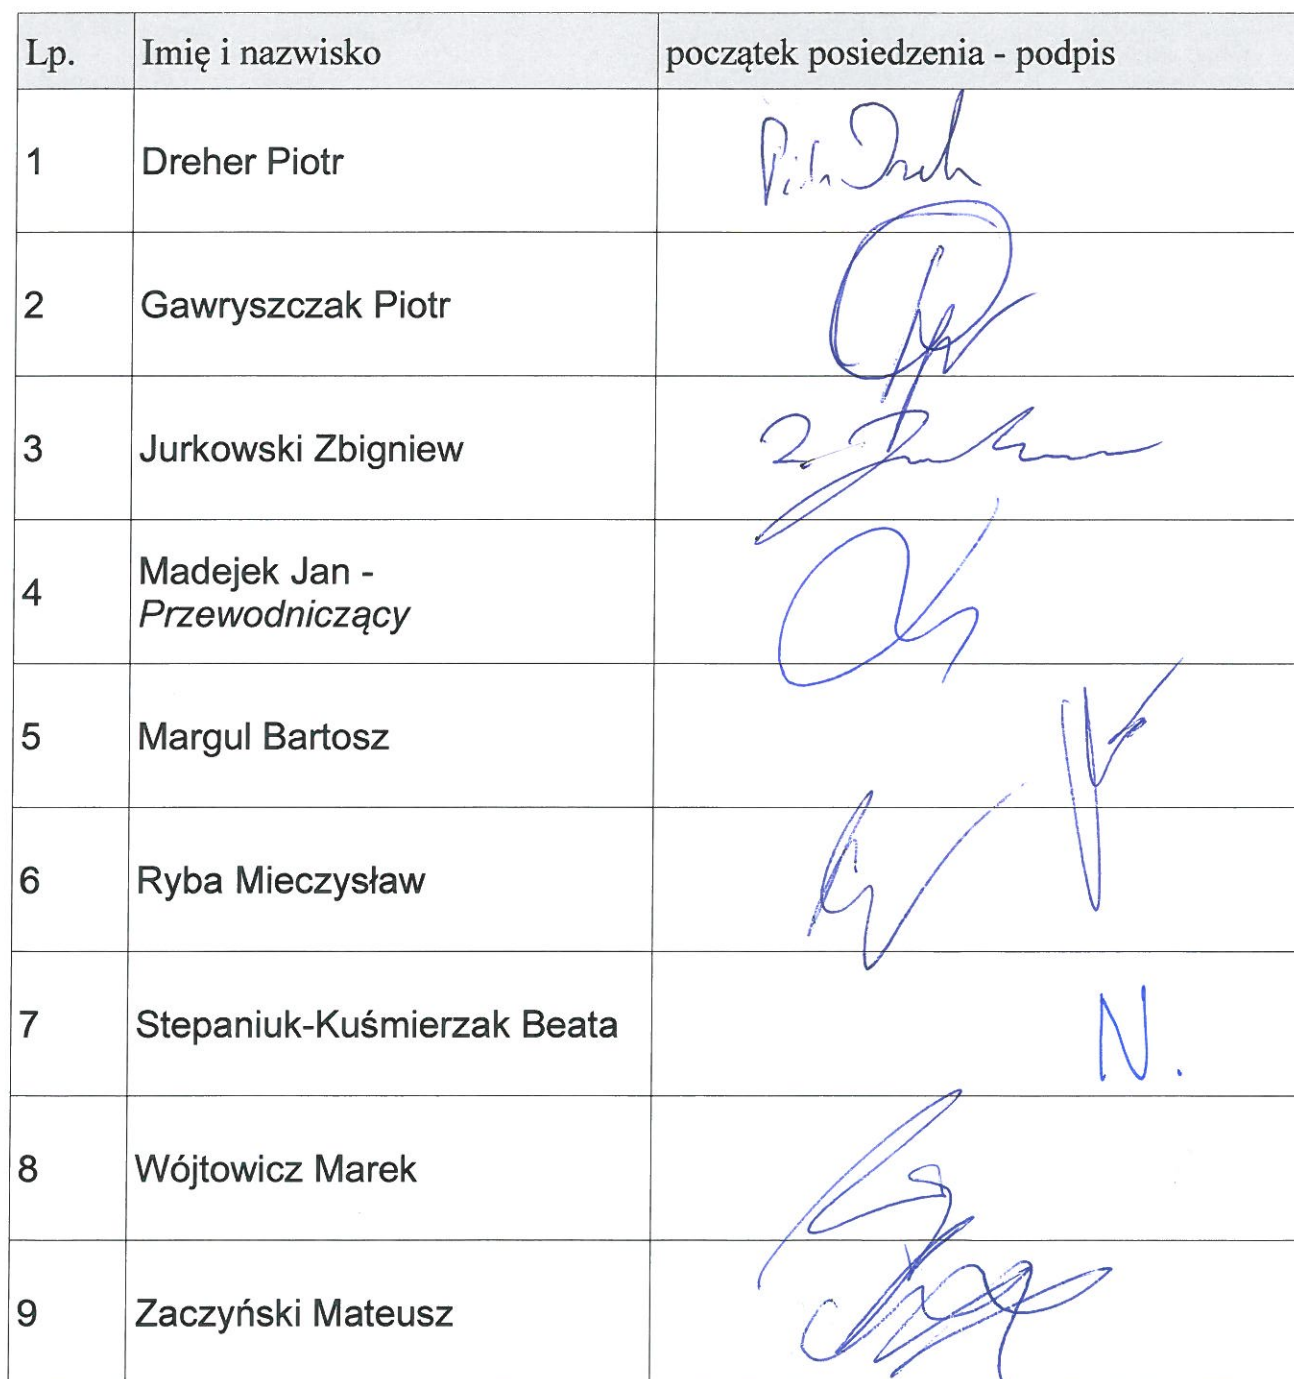 Lp. Imię i nazwisko początek posiedzenia - podpis
1 Dreher Piotr
2 Gawryszczak Piotr
3 Jurkowski Zbigniew
4 Madejek Jan -
Przewodniczący
5 Margul Bartosz
6 Ryba Mieczysław
7 Stepaniuk-Kuśmierzak Beata N.
8 Wójtowicz Marek
9 Zaczyński Mateusz